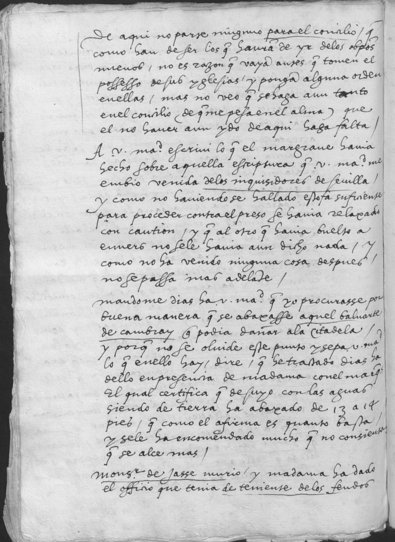 De aqui no parte ninguno para el concilio / q̃
como han de ser los q̃ havrã de yr delos obpos
nuevos / no es razon q̃ vayã antes q̃ tomen el
possesso de sus yglesias / y pongã alguna orden
en ellas / mas no veo q̃ se haga aun tanto
en el concilio (de q̃ me pesa en el alma) que
el no haver aun ydo de aqui haga falta /
A v. mag.ᵗ escrivi lo q̃ el margrave havia
hecho sobre aquella escriptura q̃ v. mag.ᵗ me
embio venida delos inquisidores de sevilla
y como no haviendose hallado esto suficiente
para proceder contra el preso se havia relaxado
con caution / y q̃ al otro q̃ havia buelto a
envers no se le havia aun dicho nada / y
como no ha venido ninguna cosa despues
no se passa mas adelãte /
mandome dias ha v. mag.ᵗ q̃ yo procurasse por
buena manera q̃ se abaxasse aquel baluarte
de cambray q̃ podia dañar ala citadela /
y porq̃ no se olvide este punto y sepa v. mag.ᵗ
lo q̃ en ello hay / dire / q̃ he tratado dias ha
dello en presencia de madama con el marq̃s
El qual certifica q̃ de suyo con las aguas
siendo de tierra ha abaxado de 13 a 14
pies / q̃ como el afirma es quanto basta /
y se le ha encomendado mucho q̃ no consienta
q̃ se alce mas /
monsᵣ de Jasse murio / y madama ha dado
el officio que tenia de teniente delos feudos